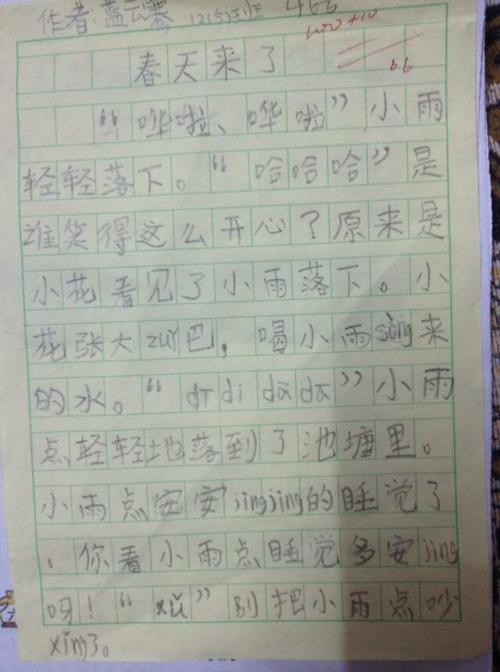 作者:蓝云寨 (215)班 466
100+10
春天来了
66
“哗啦、哗啦”小雨
轻轻落下。“哈哈哈”是
谁笑得这么开心?原来是
小花看见了小雨落下。小
花张大zuǐ巴,喝小雨sòng来
的水。“dī di dā da”小雨
点轻轻地落到了池塘里。
小雨点安安jìngjìng的睡觉了
。你看小雨点睡觉多安jìng
呀!“xū”别把小雨点吵
xǐng了。